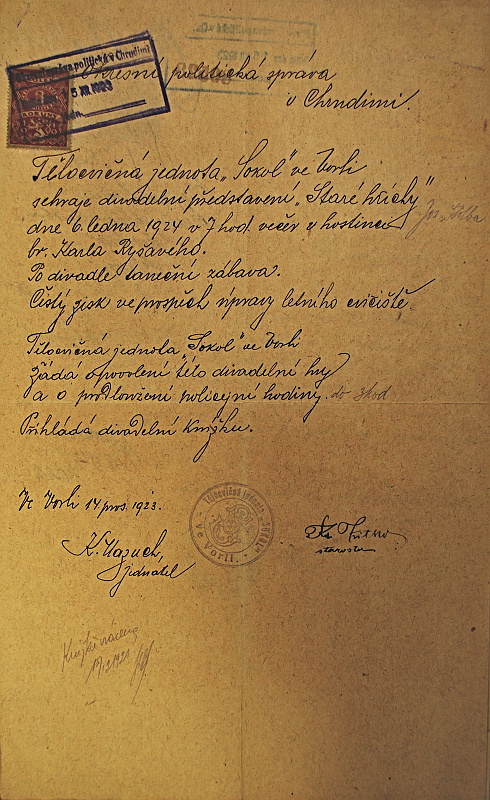 Okresní politická správa v Chrudimi
15 XII 1923
Okresní politická správa
v Chrudimi.
Tělocvičná jednota „Sokol" ve Vorli
sehraje divadelní představení „Staré hříchy"
dne 6. ledna 1924 v 7 hod večer v hostinci
br. Karla Ryšavého.
Po divadle taneční zábava.
Čistý zisk ve prospěch úpravy letního cvičiště.
Tělocvičná jednota „Sokol" ve Vorli
žádá o povolení této divadelní hry
a o prodloužení policejní hodiny. do 3 hod
Přikládá divadelní knížku.
Ve Vorli 14 pros. 1923.
Tělocvičná jednota „Sokol"
ve Vorli.
jednatel
starosta